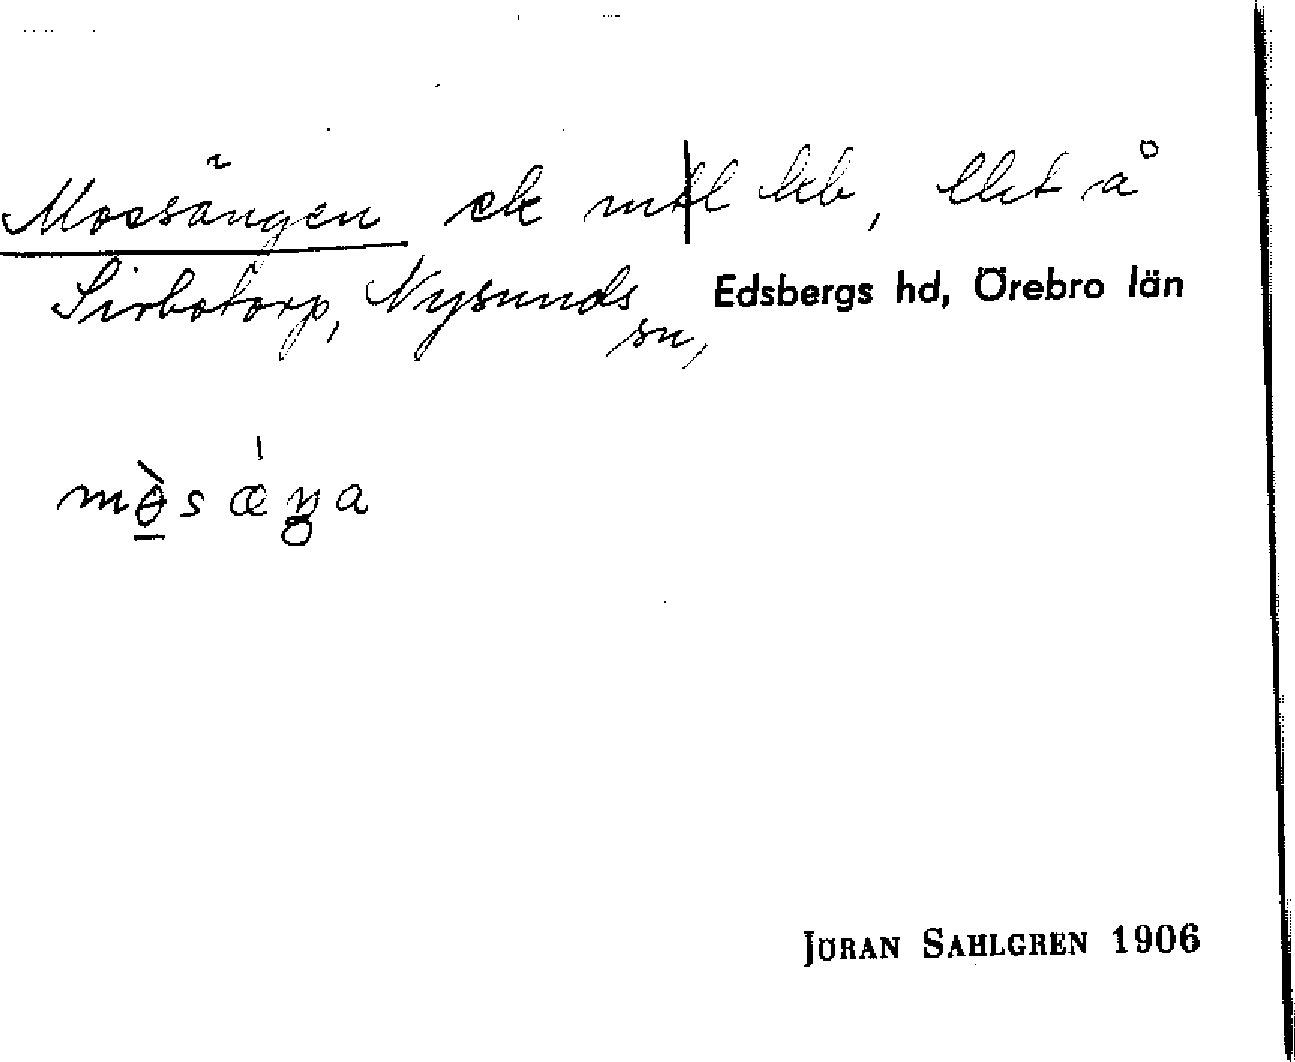 Mossängen ck mtl lcb, Cht å
Sirbotorp, Nysunds sn, Edsbergs hd, Örebro län
JÖRAN SAHLGREN 1906